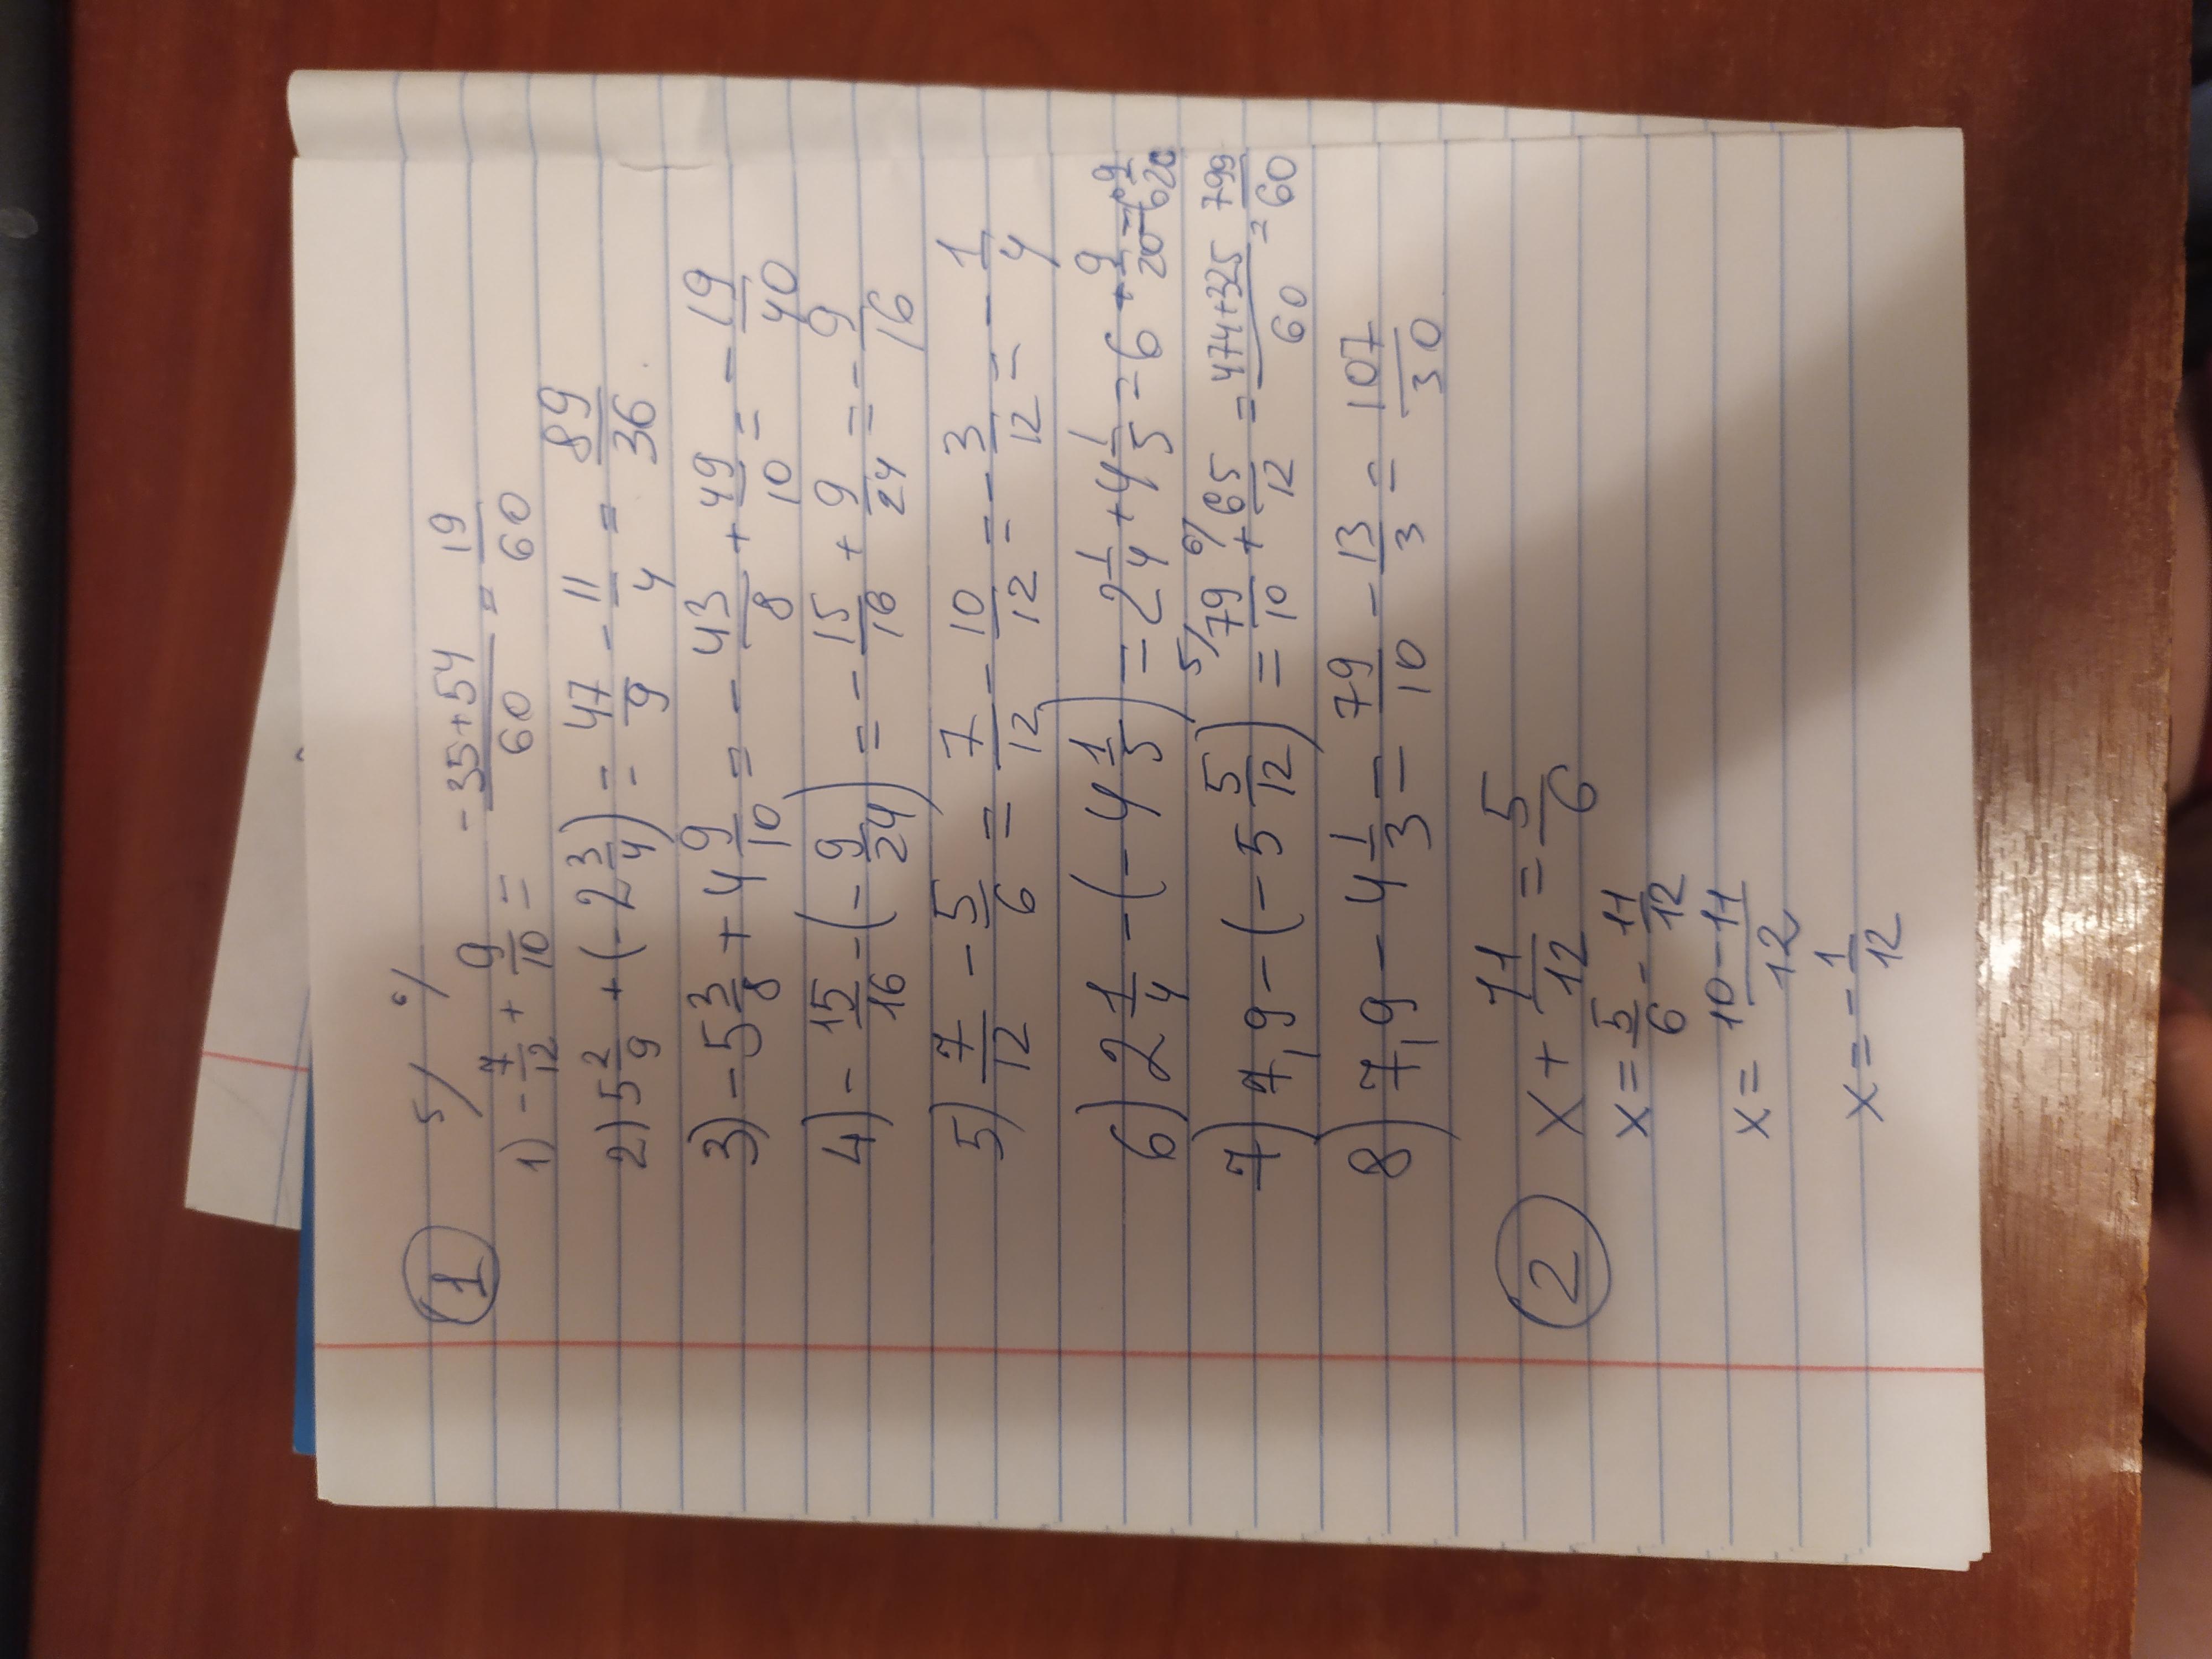 ① 5/ 6/
1) -7/12 + 9/10 = (-35+54)/60 = 19/60
2) 5 2/9 + (-2 3/4) = 47/9 - 11/4 = 89/36.
3) -5 3/8 + 4 9/10 = - 43/8 + 49/10 = - 19/40
4) - 15/16 - (- 9/24) = - 15/16 + 9/24 = - 9/16
5) 7/12 - 5/6 = 7/12 - 10/12 = - 3/12 = - 1/4
6) 2 1/4 - (- 4 1/5) = 2 1/4 + 4 1/5 = 6 + 9/20 = 6 9/20
7) 7,9 - (- 5 5/12) = 5/ 79/10 + 6/ 65/12 = (474+325)/60 = 799/60
8) 7,9 - 4 1/3 = 79/10 - 13/3 = 107/30
② x + 11/12 = 5/6
x = 5/6 - 11/12
x = (10-11)/12
x = - 1/12